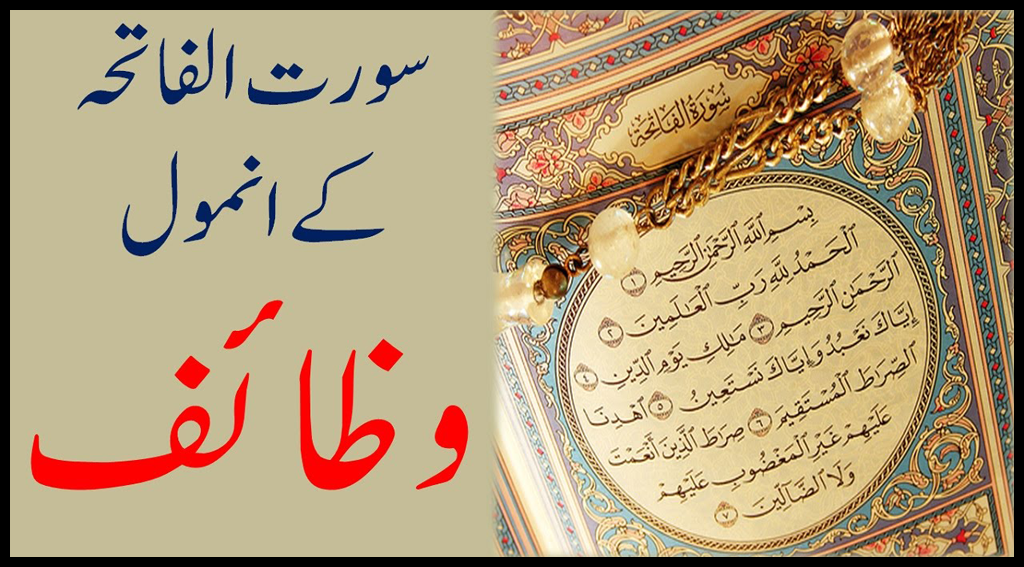 سورت الفاتحہ
کے انمول
وظائف
سُورَةُ الفَاتِحَة
بِسْمِ ٱللَّهِ ٱلرَّحْمَٰنِ ٱلرَّحِيمِ ١
ٱلْحَمْدُ لِلَّهِ رَبِّ ٱلْعَٰلَمِينَ ٢
ٱلرَّحْمَٰنِ ٱلرَّحِيمِ ٣ مَٰلِكِ يَوْمِ ٱلدِّينِ ٤
إِيَّاكَ نَعْبُدُ وَإِيَّاكَ نَسْتَعِينُ ٥ ٱهْدِنَا
ٱلصِّرَٰطَ ٱلْمُسْتَقِيمَ ٦ صِرَٰطَ ٱلَّذِينَ أَنْعَمْتَ
عَلَيْهِمْ غَيْرِ ٱلْمَغْضُوبِ عَلَيْهِمْ
وَلَا ٱلضَّآلِّينَ ٧